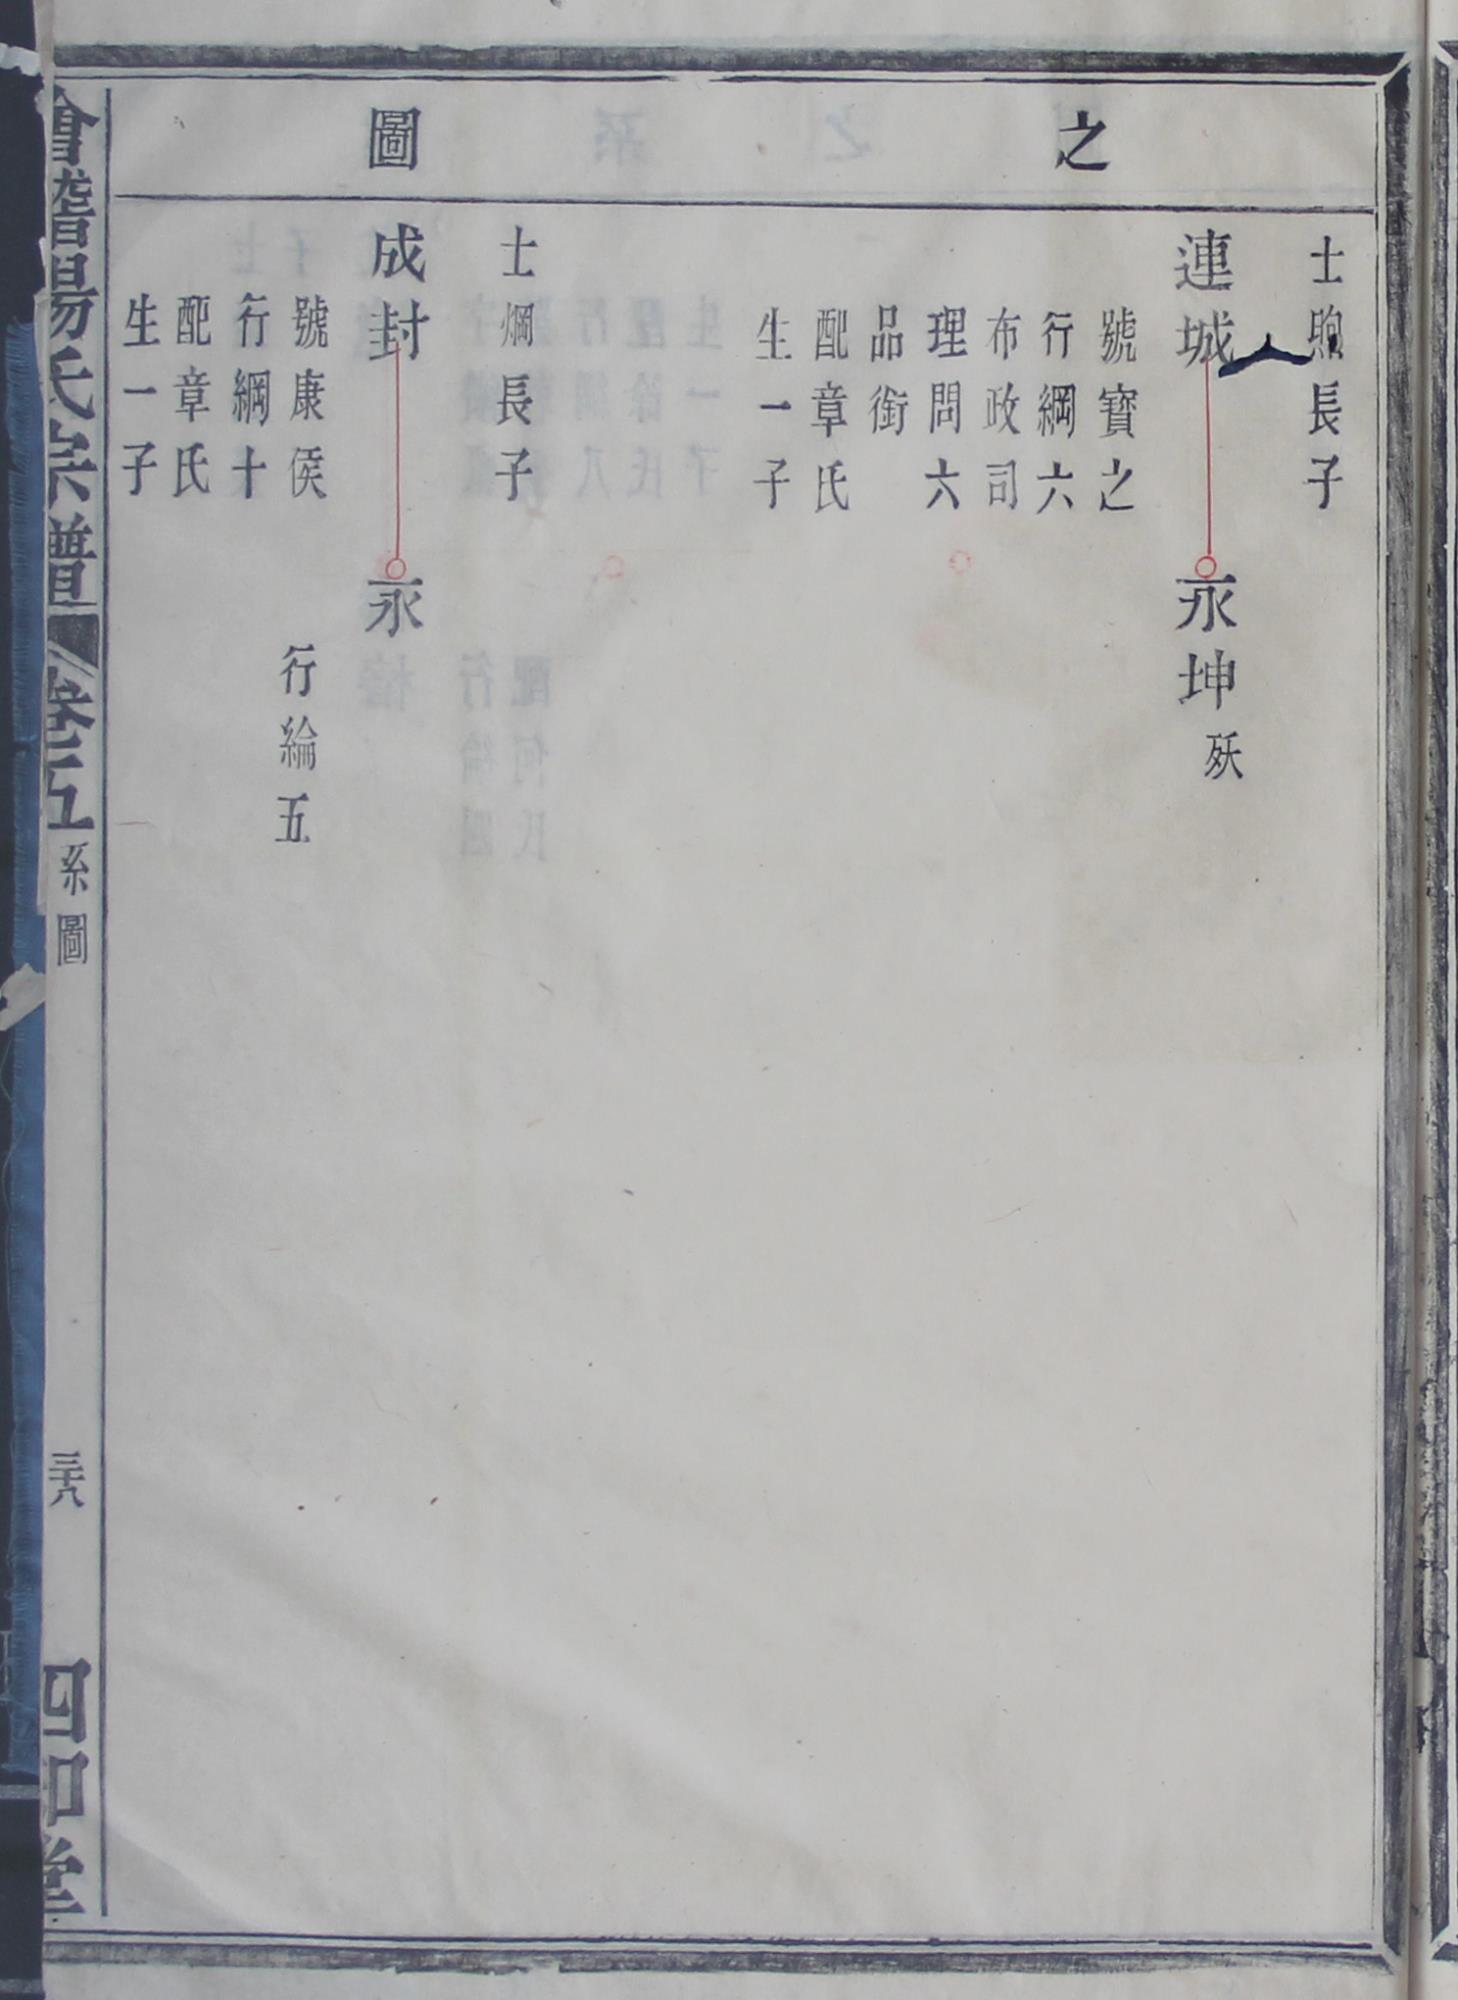 之
圖
士煦長子
連城
號寶之
行綱六
布政司
理問六
品銜
配章氏
生一子
永坤
殀
士炯長子
成封
號康侯
行綱十
配章氏
生一子
永
行綸五
會稽
氏宗譜
卷五
系圖
三十八
四
堂